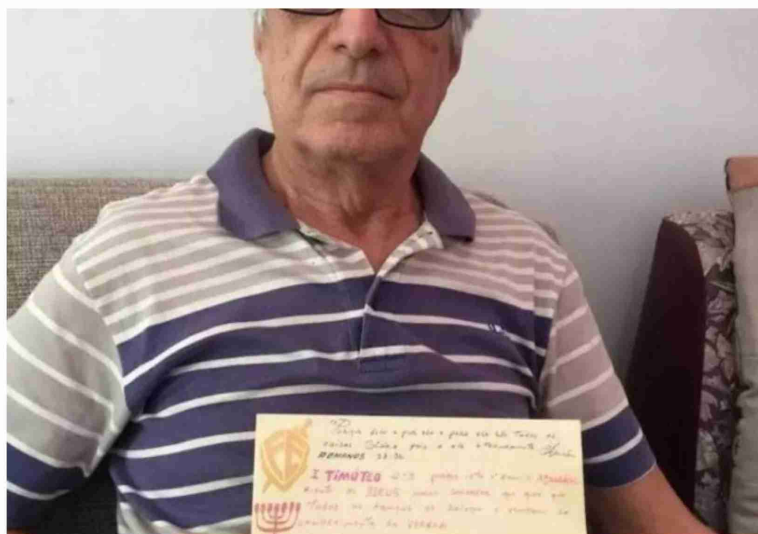 Porque dele e por ele e para ele são Todas as
coisas Glória pois a ele eternamente
ROMANOS 11:36
I TIMÓTEO isto é bom e
diante de DEUS nosso salvador que quer que
Todos os homens se salvem e venham ao
conhecimento da VERDADE